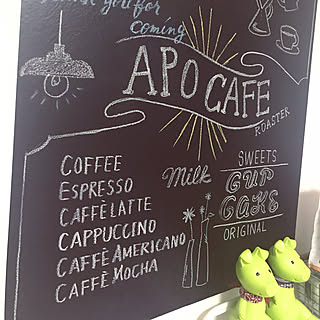 you for
coming
APO CAFE
ROASTER
COFFEE
ESPRESSO
CAFFÈ LATTE
CAPPUCCINO
CAFFÈ AMERICANO
CAFFÈ MOCHA
Milk
SWEETS
CUP
CAKE
ORIGINAL